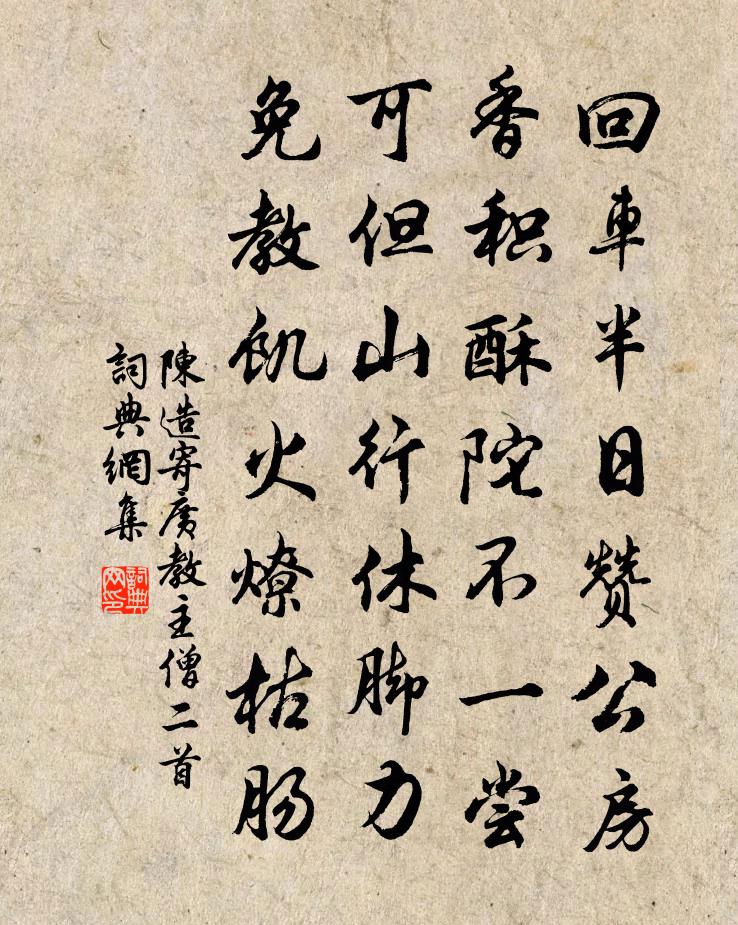 回車半日赞公房
香积酥陀不一尝
可但山行休脚力
免教飢火燎枯肠
陳造寄廣教主僧二首
詞典網集
詞典
网印